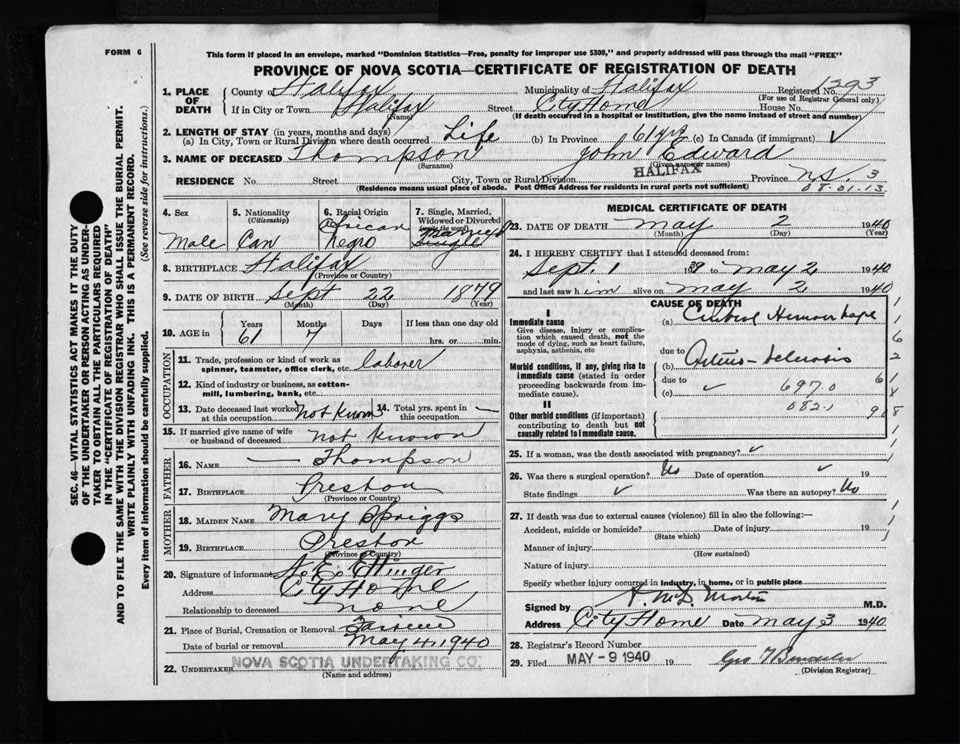 FORM 6
This form if placed in an envelope, marked "Dominion Statistics—Free, penalty for improper use $300," and properly addressed will pass through the mail "FREE"
PROVINCE OF NOVA SCOTIA—CERTIFICATE OF REGISTRATION OF DEATH
SEC. 46—VITAL STATISTICS ACT MAKES IT THE DUTY
OF THE UNDERTAKER OR PERSON ACTING AS UNDER-
TAKER TO OBTAIN ALL THE PARTICULARS REQUIRED
IN THE "CERTIFICATE OF REGISTRATION OF DEATH"
AND TO FILE THE SAME WITH THE DIVISION REGISTRAR WHO SHALL ISSUE THE BURIAL PERMIT.
WRITE PLAINLY WITH UNFADING INK. THIS IS A PERMANENT RECORD.
Every item of information should be carefully supplied. (See reverse side for instructions.)
1. PLACE OF DEATH County of Halifax Municipality of Halifax Registered No. 1293
(For use of Registrar General only)
If in City or Town Halifax Street City Home House No.
(Name) (If death occurred in a hospital or institution, give the name instead of street and number)
2. LENGTH OF STAY (in years, months and days)
(a) In City, Town or Rural Division where death occurred Life (b) In Province 61 yrs (c) In Canada (if immigrant) ✓
3. NAME OF DECEASED Thompson John Edward
(Surname) (Given name or names)
RESIDENCE No. Street City, Town or Rural Division HALIFAX Province N.S. 3
(Residence means usual place of abode. Post Office Address for residents in rural parts not sufficient) 08.01.13.
4. Sex Male
5. Nationality (Citizenship) Can
6. Racial Origin African Negro
7. Single, Married, Widowed or Divorced Single
8. BIRTHPLACE Halifax
(Province or Country)
9. DATE OF BIRTH Sept 22 1879
(Month) (Day) (Year)
10. AGE in Years Months Days If less than one day old
61 7 hrs. or min.
OCCUPATION
11. Trade, profession or kind of work as
spinner, teamster, office clerk, etc. laborer
12. Kind of industry or business, as cotton-
mill, lumbering, bank, etc.
13. Date deceased last worked at this occupation not known 14. Total yrs. spent in this occupation —
15. If married give name of wife
or husband of deceased not known
FATHER
16. NAME — Thompson
17. BIRTHPLACE Preston
(Province or Country)
MOTHER
18. MAIDEN NAME Mary Spriggs
19. BIRTHPLACE Preston
(Province or Country)
20. Signature of informant A. E. Ettinger
Address City Home
Relationship to deceased none
21. Place of Burial, Cremation or Removal
Date of burial or removal May 4, 1940
22. UNDERTAKER NOVA SCOTIA UNDERTAKING CO.
(Name and address)
MEDICAL CERTIFICATE OF DEATH
23. DATE OF DEATH May 2 1940
(Month) (Day) (Year)
24. I HEREBY CERTIFY that I attended deceased from:
Sept. 1 1939 to May 2 1940
and last saw him alive on May 2 1940
CAUSE OF DEATH
I
Immediate cause (a) Cerebral Hemorrhage
Give disease, injury or complica-
tion which caused death, not the
mode of dying, such as heart failure,
asphyxia, asthenia, etc due to
Morbid conditions, if any, giving rise to (b) Arterio-sclerosis
immediate cause (stated in order due to
proceeding backwards from im- (c) ✓ 697.0
mediate cause).
II 082.1
Other morbid conditions (if important)
contributing to death but not
causally related to immediate cause.
25. If a woman, was the death associated with pregnancy? ✓
26. Was there a surgical operation? No Date of operation ✓ 19
State findings ✓ Was there an autopsy? No
27. If death was due to external causes (violence) fill in also the following:—
Accident, suicide or homicide? Date of injury 19
(State which)
Manner of injury
(How sustained)
Nature of injury
Specify whether injury occurred in industry, in home, or in public place
Signed by Morton M.D.
Address City Home Date May 3 1940
28. Registrar's Record Number
29. Filed MAY - 9 1940 19
(Division Registrar)